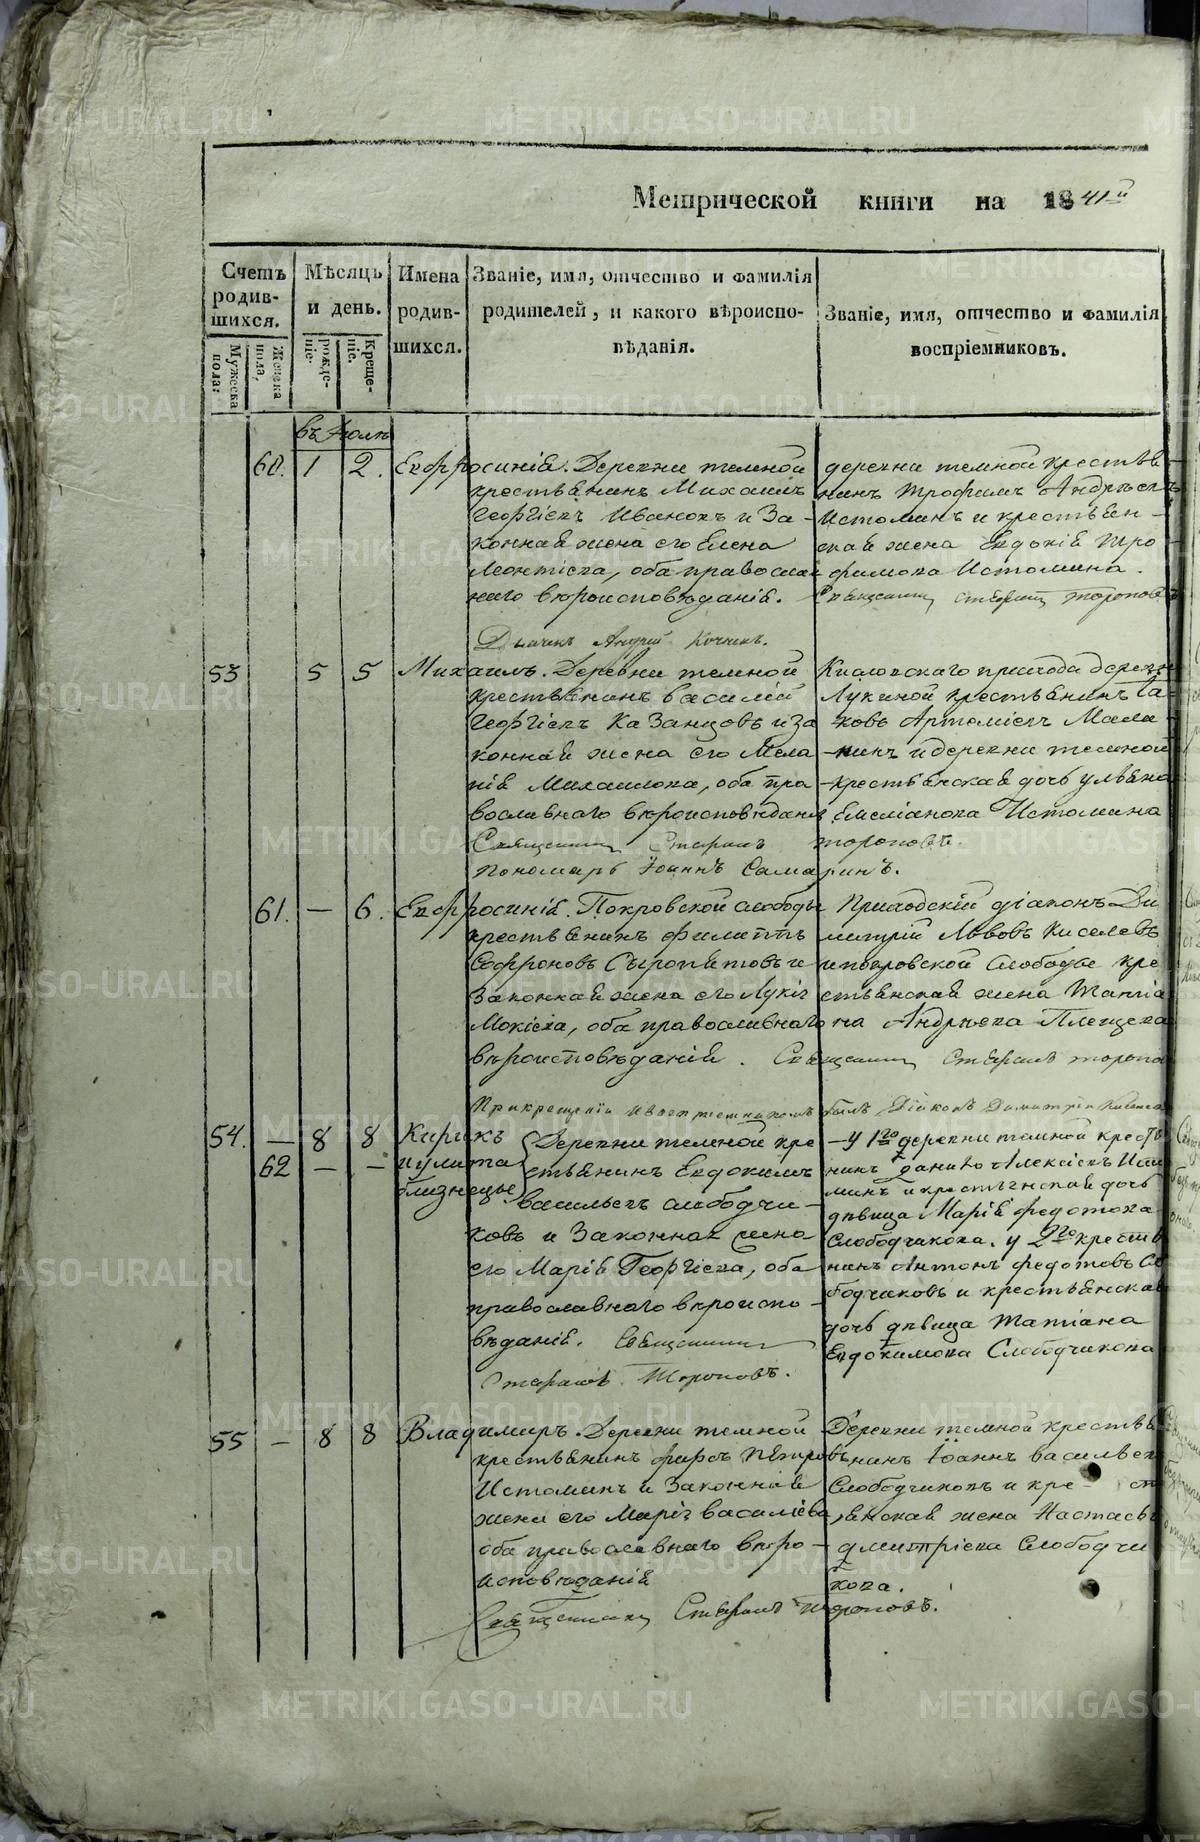 Метрической книги на 1841й
Счетъ родив-шихся.
Мужеска пола:
Женска пола,
Мѣсяцъ и день.
рожде-ніе.
Креще-ніе.
Имена родив-шихся.
Званіе, имя, отчество и фамилія родителей, и какого вѣроиспо-вѣданія.
Званіе, имя, отчество и фамилія воспріемниковъ.
въ Іюлѣ
60. 1 2. Евфросинія. Деревни темной
крестьянинъ Михаилъ
Георгіевъ Ивановъ и За-
конная жена его Елена
Леонтіева, оба православ
наго вѣроисповѣданія.
деревни темной крестья
нинъ Трофимъ Андреевъ
Истоминъ и крестьян-
ская жена Евдокія Тро
фимова Истомина.
Священникъ Стефанъ Тороповъ
Дьячекъ Андрей
53 5 5 Михаилъ. Деревни темной
крестьянинъ Василій
Георгіевъ Казанцовъ и за
конная жена его Мела
нія Михаилова, оба пра
вославнаго вѣроисповѣданія
Кисловскаго прихода деревни
Лукиной крестьянинъ Іа-
ковъ Артеміевъ Мала-
-хинъ и деревни темной
-крестьянская дочь Ульяна
Емеліанова Истомина
Священникъ Стефанъ Тороповъ.
Пономарь Іоаннъ Самаринъ.
61. — 6. Евфросинія. Покровской слободы
крестьянинъ Филиппъ
Софроновъ Сыропятовъ и
Законная жена его Лукія
Мокіева, оба православнаго
вѣроисповѣданія.
Приходскій діаконъ Ди
митрій Львовъ Киселевъ
и покровской слободы кре
стьянская жена Татіа
на Андреева Плещева
Священникъ Стефанъ Торопов
При крещеніи и воспріемникомъ былъ Діаконъ Димитрій Киселев
54. — 8 8 Кирикъ
62 — — и Улита
близнецы
Деревни темной кре
стьянинъ Евдокимъ
Васильевъ Слободчи-
ковъ и Законная жена
его Марія Георгіева, оба
православнаго вѣроиспо-
вѣданія. Священникъ
Стефанъ Тороповъ.
-У 1го деревни темной кресть
нинъ Данило Алексіевъ Исто
минъ и крестьянская дочь
дѣвица Марія Федотова
Слободчикова. у 2го крестья
нинъ Антонъ Федотовъ Сло
бодчиковъ и крестьянская
дочь дѣвица Татіана
Евдокимова Слободчикова
55 — 8 8 Владимиръ. Деревни темной
крестьянинъ Фирсъ Петровъ
Истоминъ и Законная
жена его Марія Василіева,
оба православнаго вѣро-
исповѣданія
Деревни темной крестья
нинъ Іоаннъ Васильевъ
Слободчиковъ и кре- ст
янская жена Настасья
Дмитріева Слободчи
кова.
Священникъ Стефанъ Тороповъ.
METRIKI.GASO-URAL.RU